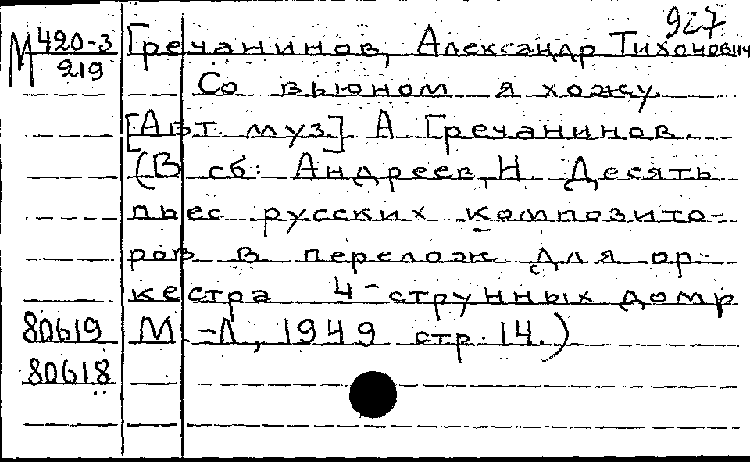 927
М 420-3 Гречанинов, Александр Тихонович
219
Со вьюном я хожу.
[Авт. муз.] А. Гречанинов.
(В сб: Андреев, Н. Десять
пьес русских компози­то-
ров в перелож. для ор-
кестра 4-струнных домр
80619 М.-Л., 1949 стр. 14.)
80618